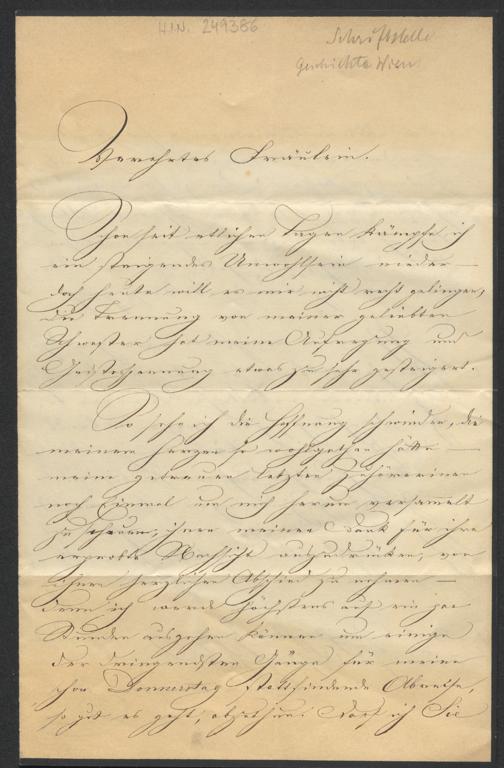 H.I.N. 249386
Schriftstelle
Geschichte Wien
Verehrtes Fräulein.
Schon seit etlichen Tagen kämpfe ich
ein steigendes Unwohlsein nieder —
doch heute will es mir nicht recht gelingen,
die Trennung von meiner geliebten
Schwester hat meine Aufregung und
Geistesspannung etwas zu sehr gesteigert.
So sehe ich die Hoffnung schwinden, die
meinem Herzen so wohlgethan hätte —
meine getreuen letzten Zuhörerinen
noch Einmal um mich herum versammelt
zu schauen, ihnen meinen Dank für ihre
erprobte Nachsicht auszudrücken, von
ihnen herzlichen Abschied zu nehmen —
denn ich werde höchstens auf ein par
Stunden ausgehen können um einige
der dringendsten Gänge für meine
schon Donnerstag stattfindende Abreise,
so gut es geht, abzuthun. Darf ich Sie